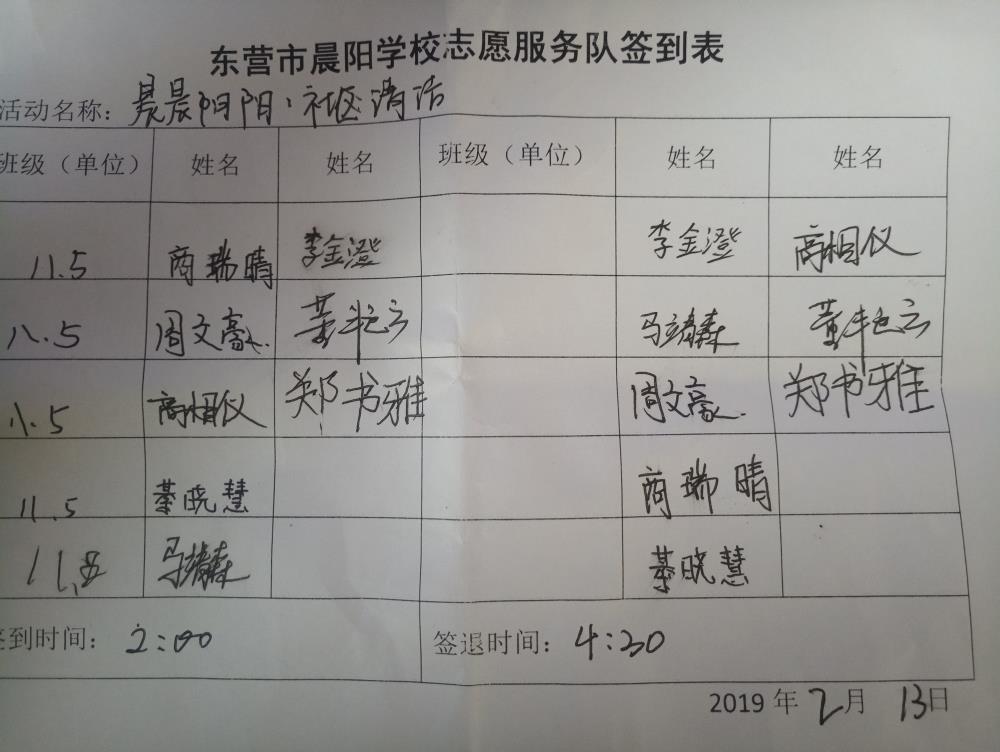 东营市晨阳学校志愿服务队签到表
活动名称：晨晨阳阳·社区清洁
班级（单位） 姓名 姓名 班级（单位） 姓名 姓名
11.5 商瑞晴 李金澄 李金澄 商相仪
八.5 周文豪 董半云 马靖森 董半云
八.5 商相仪 郑书雅 周文豪 郑书雅
11.5 綦晓慧 商瑞晴
11. 马靖森 綦晓慧
签到时间：2:00 签退时间：4:30
2019年2月13日